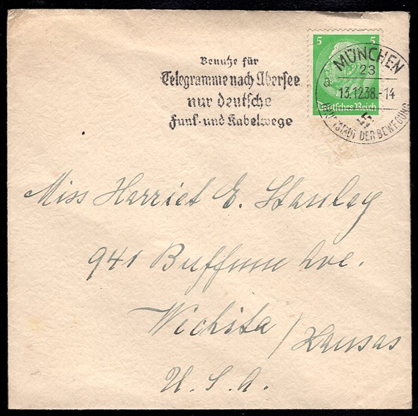 Benutze für
Telegramme nach Übersee
nur deutsche
Funk- und Kabelwege
5 5
Deutsches Reich
MÜNCHEN
23
a
13.12.38.-14
HAUPTSTADT DER BEWEGUNG
Miss Harriet E. Stanley
941 Buffum Ave.
Wichita / Kansas
U. S. A.